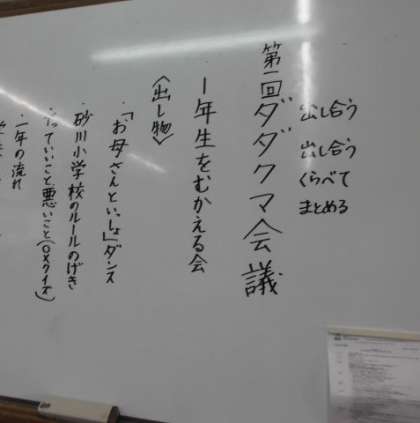 出し合う
出し合う
くらべて
まとめる
第一回ダダクマ会議
1年生をむかえる会
〈出し物〉
・「お母さんといっしょ」ダンス
・砂川小学校のルールのげき
っていいこと悪いこと(○×クイズ)
・一年の流れ